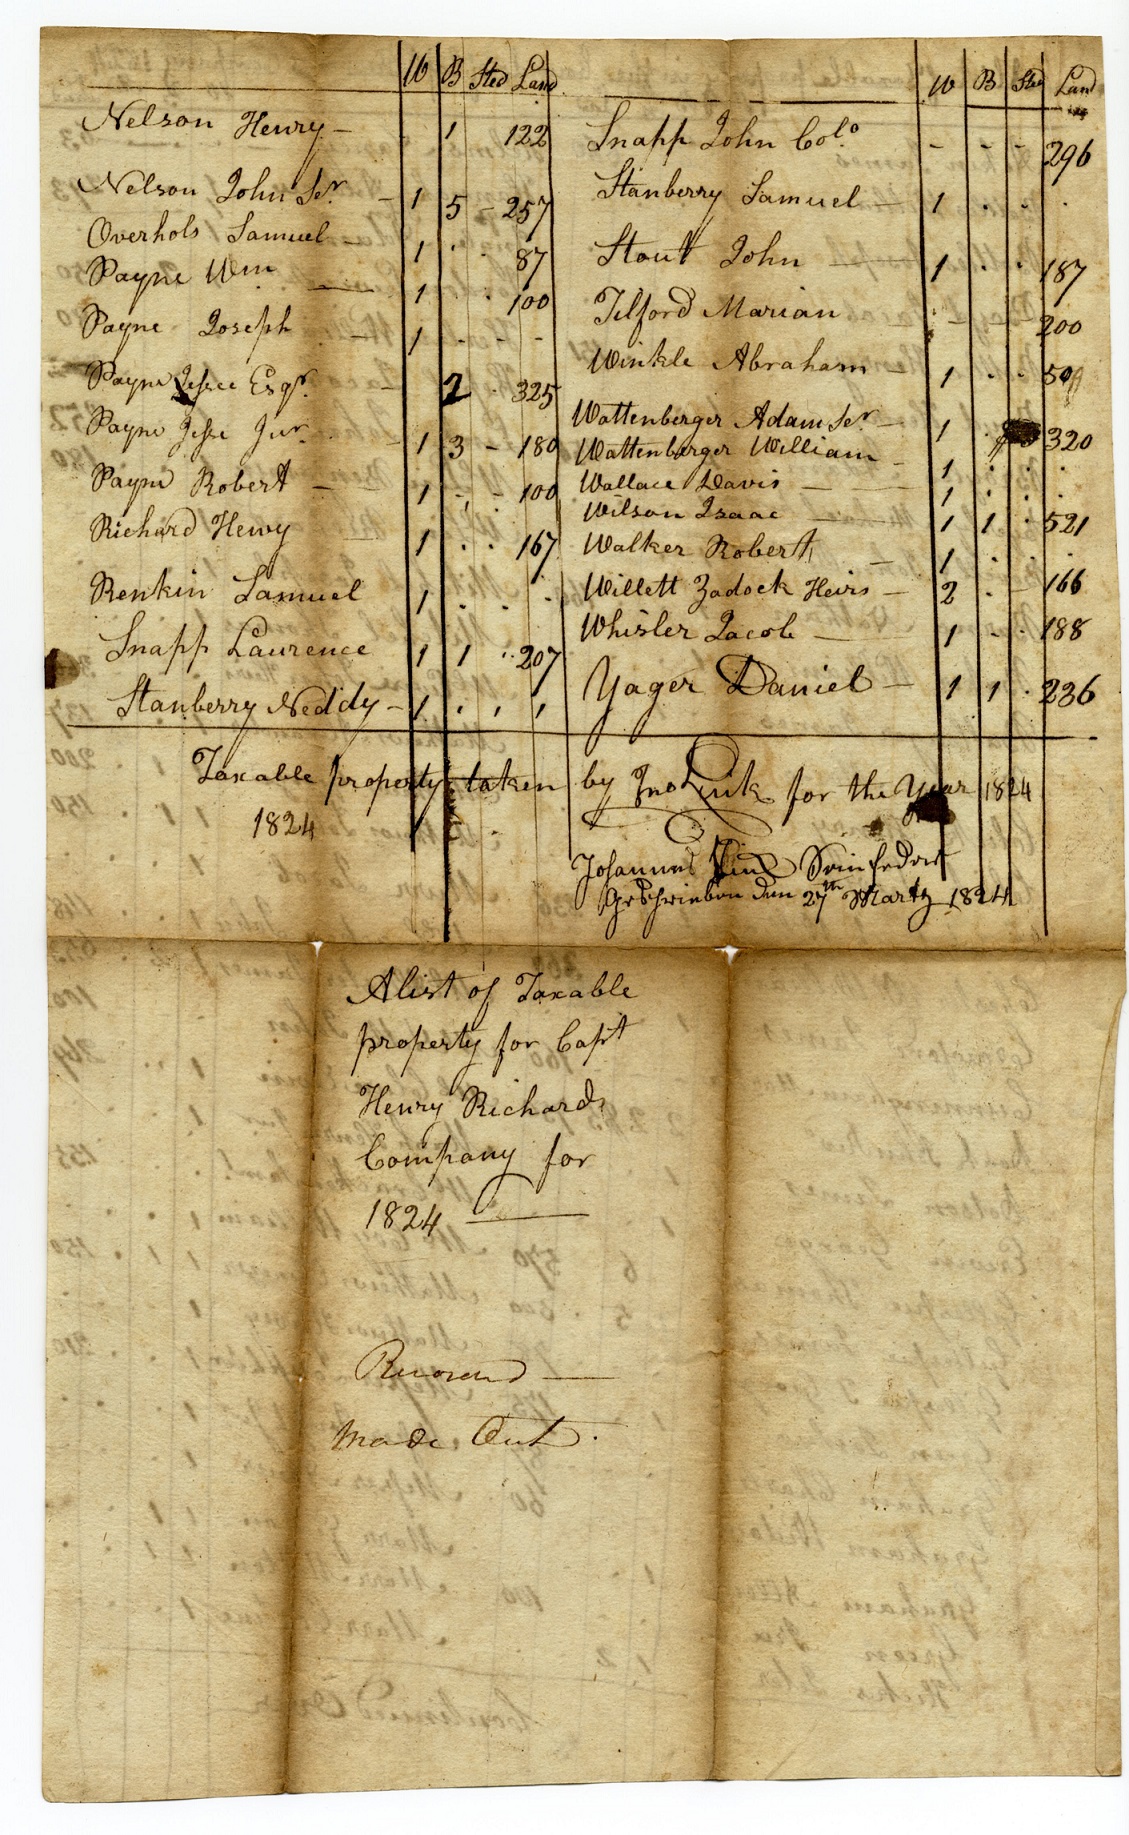 W B Sted Land
Nelson Henry - . 1 122
Nelson John Ser - 1 5 - 257
Overhols Samuel - 1 . . 87
Payne Wm 1 . . 100
Payne Joseph - 1 - - -
Payne Jesse Esqr. - 2 . 325
Payne Jesse Jur. - 1 3 - 180
Payne Robert - 1 - - 100
Richard Henry 1 . . 167
Renkin Samuel 1 . . .
Snapp Laurence 1 1 . 207
Stanberry Neddy - 1 . . .
W B Sted Land
Snapp John Colo. - - - 296
Stanberry Samuel - 1 . . .
Stout John - 1 . . 187
Tilford Marian . - . 200
Winkle Abraham - 1 . . 50
Wattenberger Adam Ser - 1 . 320
Wattenbarger William - 1 . . .
Wallace Davis - 1 . . .
Wilson Isaac - 1 1 . 521
Walker Robert - 1 . . .
Willett Zadock Heirs - 2 . - 166
Whisler Jacob - 1 - . 188
Yager Daniel - 1 1 . 236
Taxable property taken by Jno Link for the Year 1824
1824
Johannes Link
Geschrieben den 27th Martz 1824
A list of Taxable
property for Capt
Henry Richards
Company for
1824
Made Out.